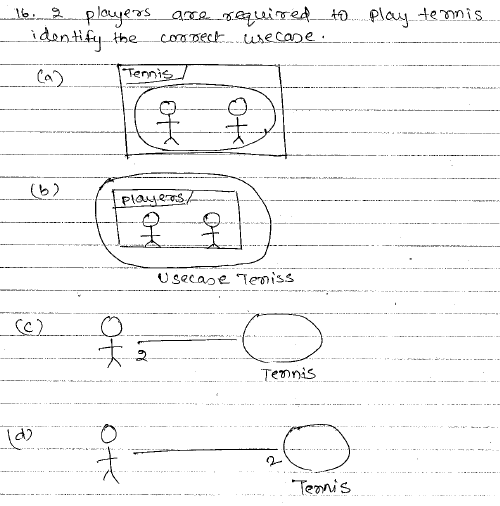 16. 2 players are required to play tennis
identify the correct usecase.
(a)
Tennis
(b)
players
Usecase Teniss
(c)
2
Tennis
(d)
2
Tennis